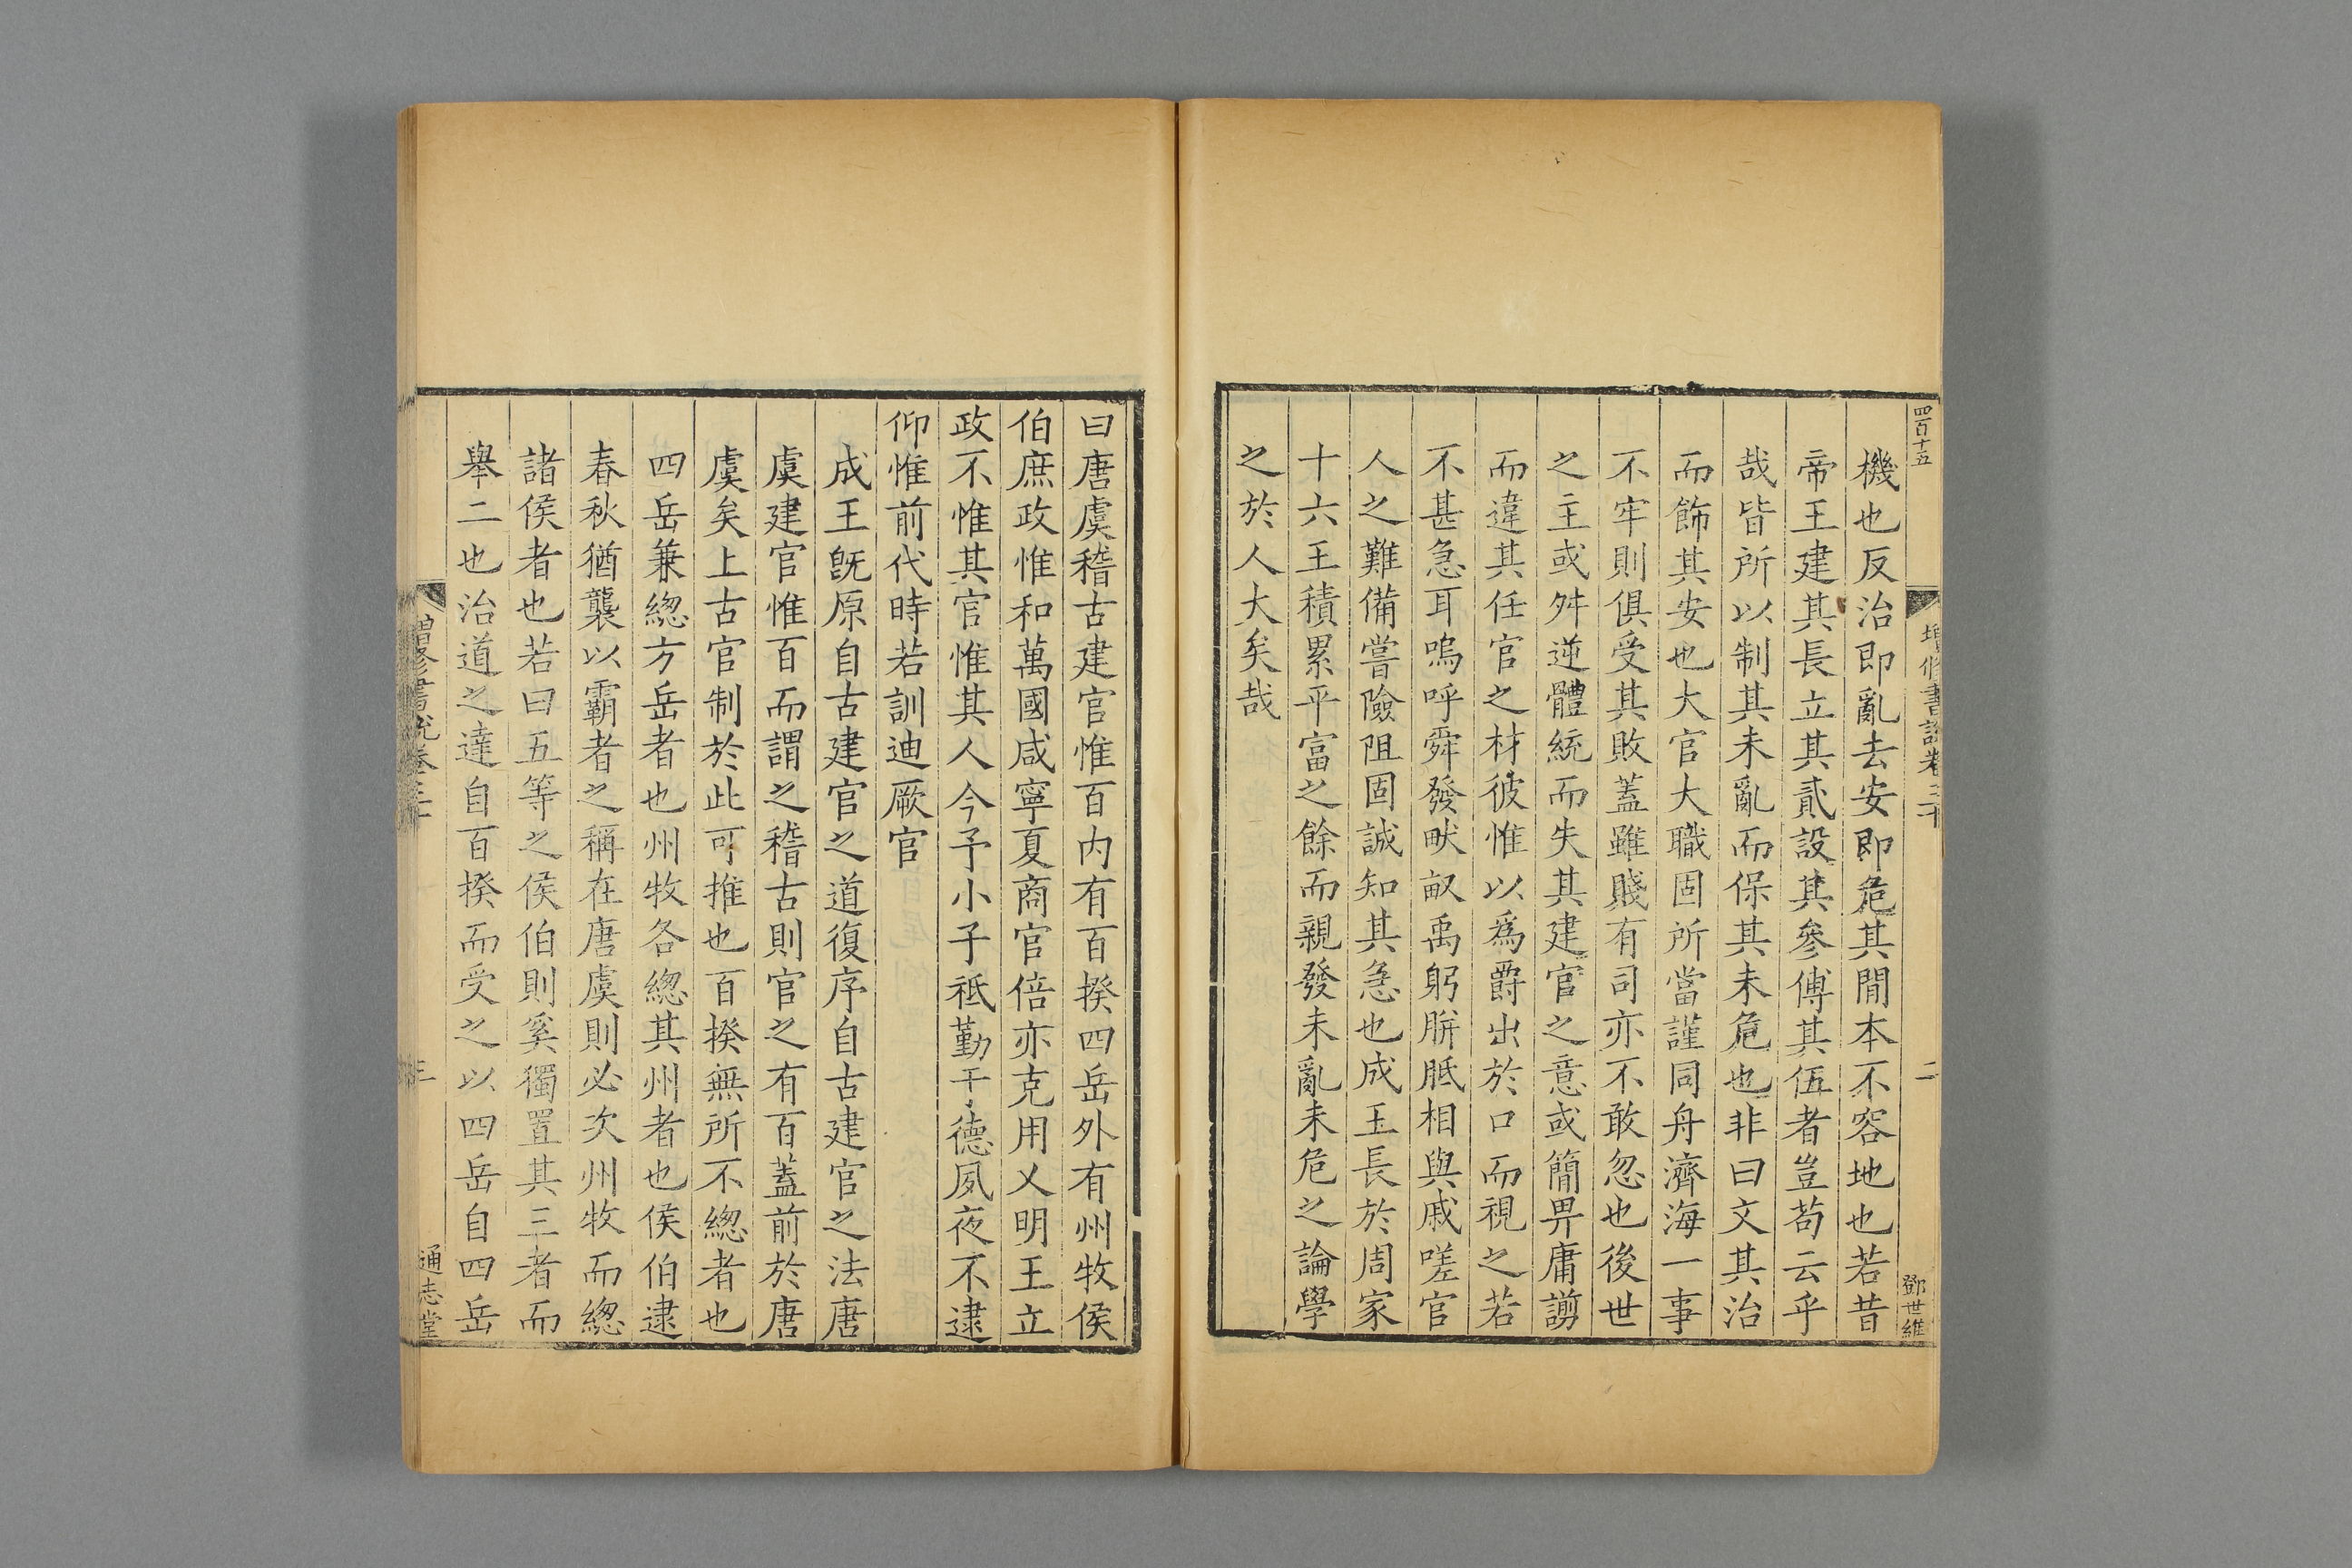 四百十五
增修書說卷三十
二
鄧世維
機也反治即亂去安即危其間本不容地也若昔
帝王建其長立其貳設其參傅其伍者豈苟云乎
哉皆所以制其未亂而保其未危也非曰文其治
而飾其安也大官大職固所當謹同舟濟海一事
不牢則俱受其敗蓋雖賤有司亦不敢忽也後世
之主或舛逆體統而失其建官之意或簡畀庸謭
而違其任官之材彼惟以爲爵出於口而視之若
不甚急耳嗚呼舜發畎畝禹躬胼胝相與戚嗟官
人之難備嘗險阻固誠知其急也成王長於周家
十六王積累平富之餘而親發未亂未危之論學
之於人大矣哉
曰唐虞稽古建官惟百内有百揆四岳外有州牧侯
伯庶政惟和萬國咸寧夏商官倍亦克用乂明王立
政不惟其官惟其人今予小子祗勤于德夙夜不逮
仰惟前代時若訓迪厥官
成王旣原自古建官之道復序自古建官之法唐
虞建官惟百而謂之稽古則官之有百蓋前於唐
虞矣上古官制於此可推也百揆無所不緫者也
四岳兼緫方岳者也州牧各緫其州者也侯伯逮
春秋猶襲以霸者之稱在唐虞則必次州牧而緫
諸侯者也若曰五等之侯伯則奚獨置其三者而
舉二也治道之達自百揆而受之以四岳自四岳
增修書說卷三十
三
通志堂